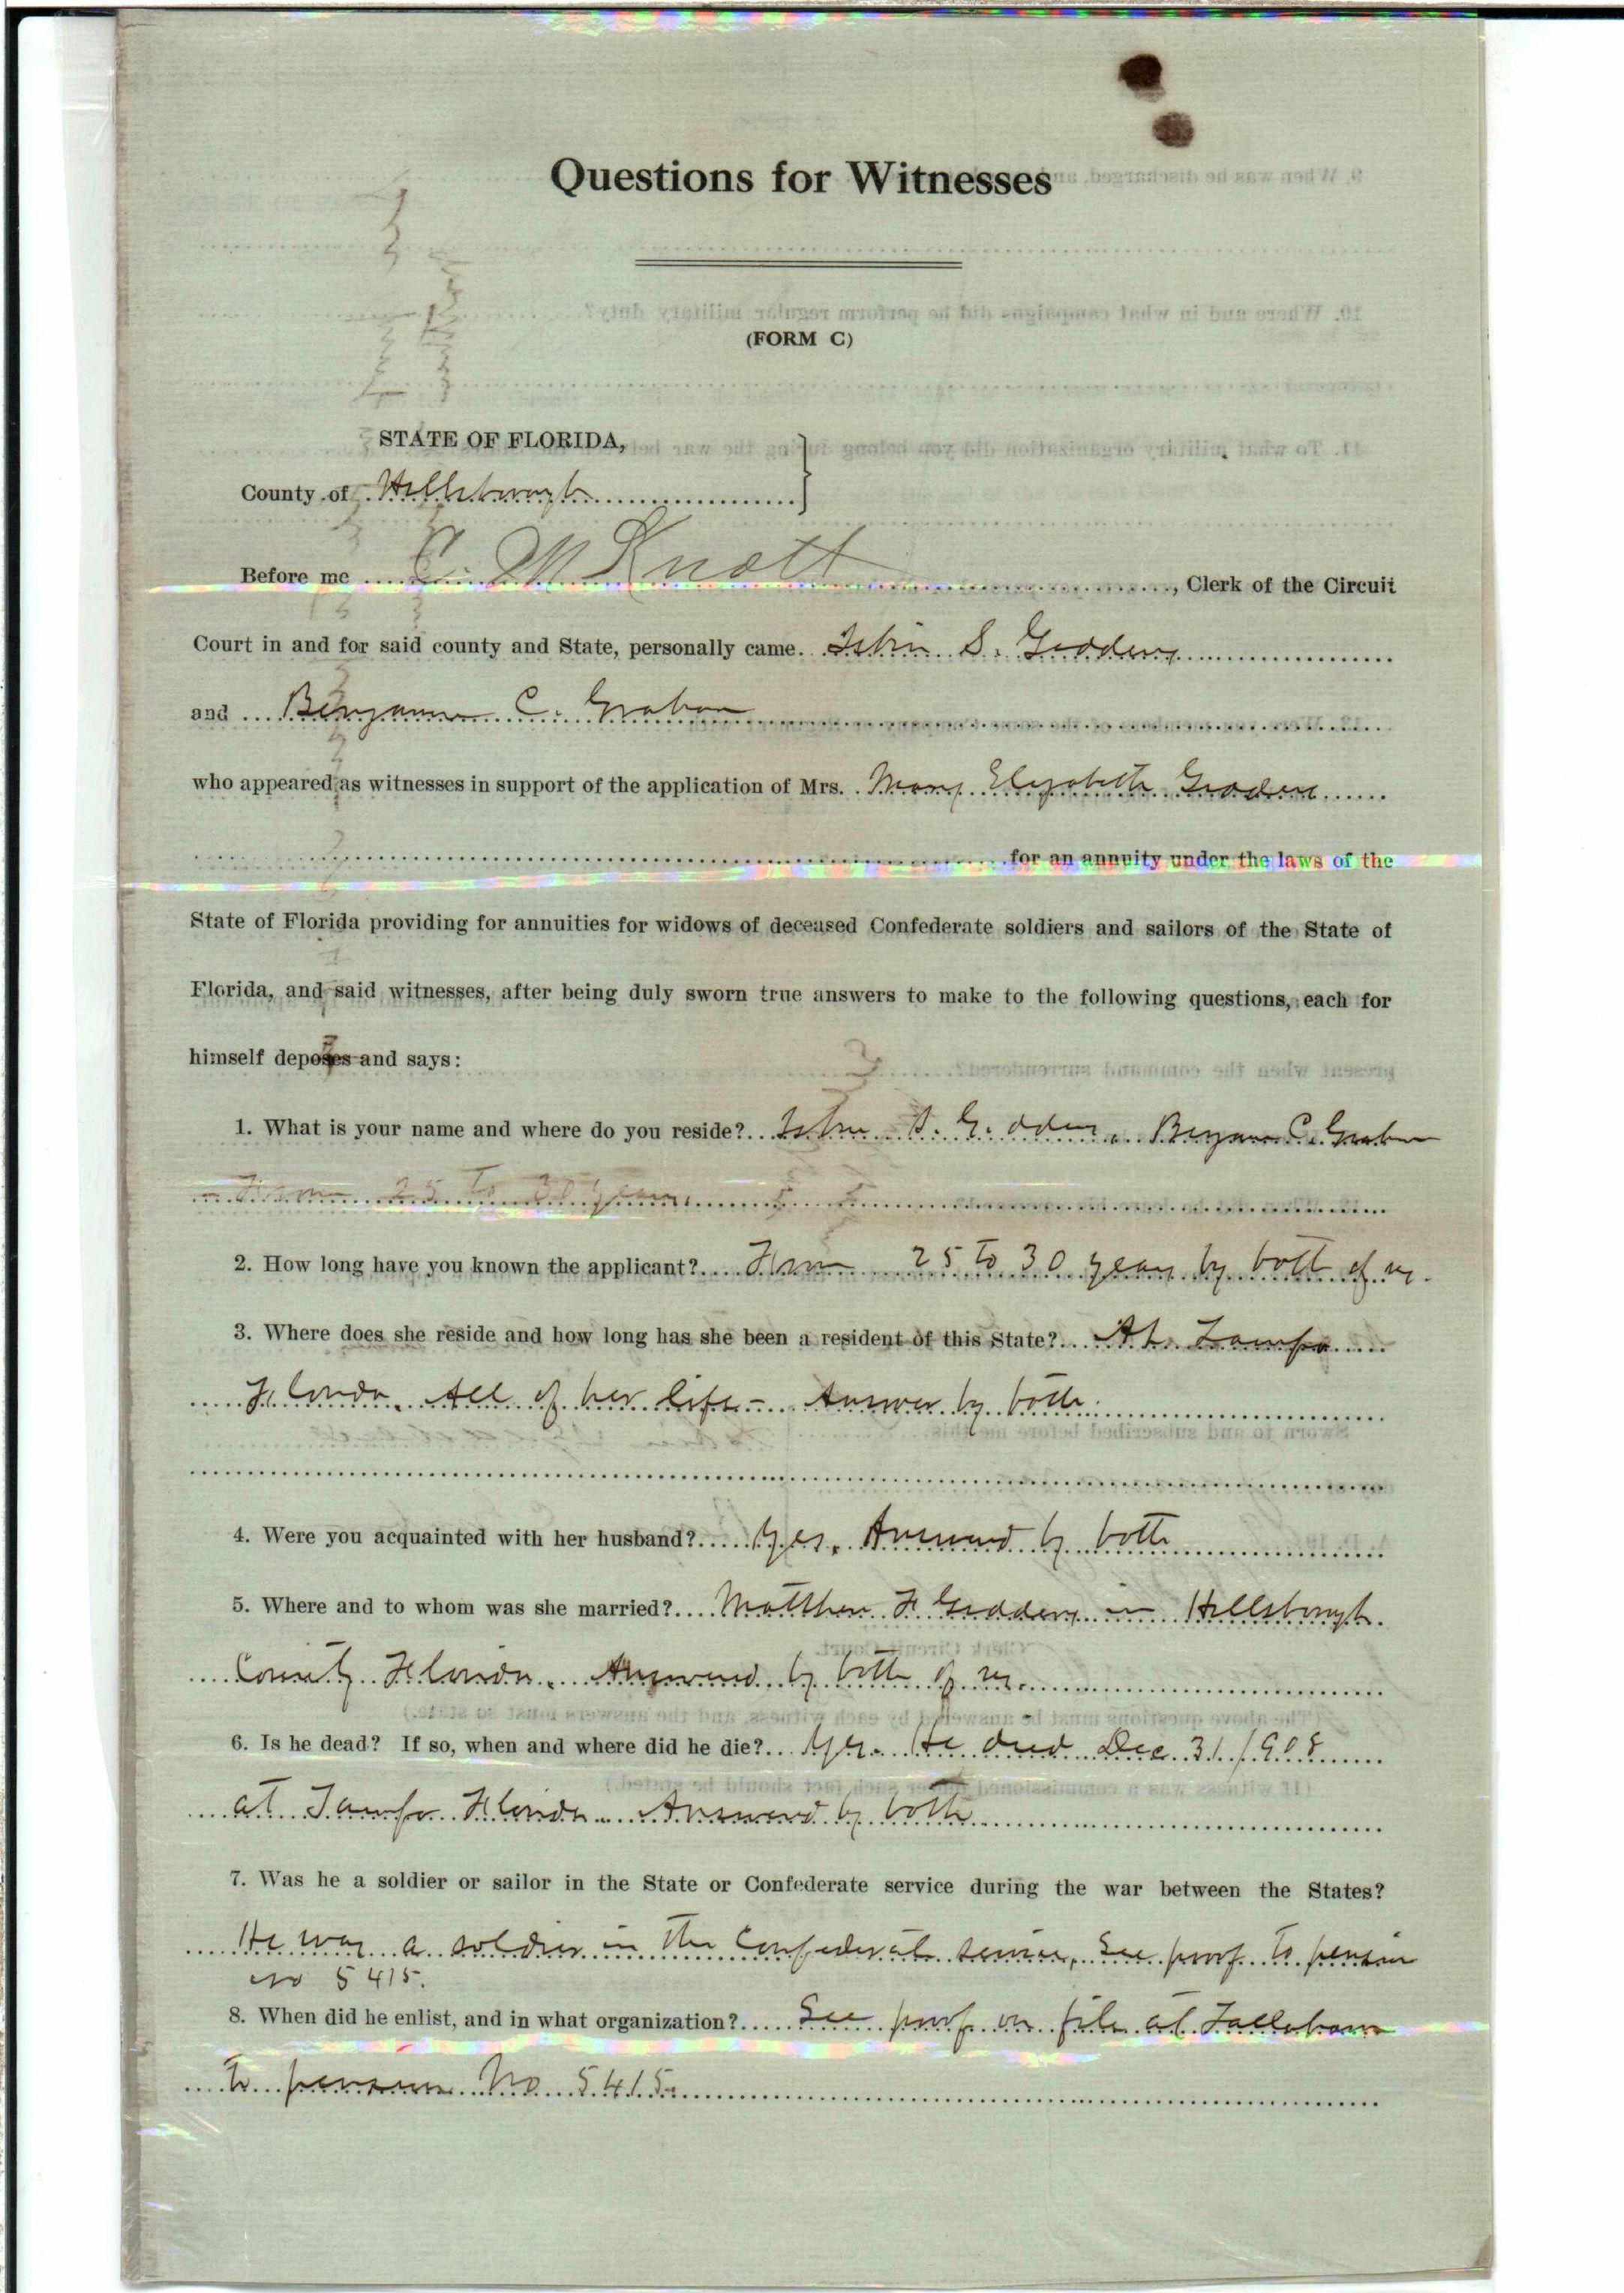 Questions for Witnesses
(FORM C)
STATE OF FLORIDA,
County of Hillsborough
Before me C. M Knott, Clerk of the Circuit
Court in and for said county and State, personally came. S. Giddens
and Benjamin C. Graham
who appeared as witnesses in support of the application of Mrs. Mary Elizabeth Giddens
for an annuity under the laws of the
State of Florida providing for annuities for widows of deceased Confederate soldiers and sailors of the State of
Florida, and said witnesses, after being duly sworn true answers to make to the following questions, each for
himself deposes and says:
1. What is your name and where do you reside? S. Giddens, Benjamin C. Graham
From 25 to 30 years.
2. How long have you known the applicant? From 25 to 30 years by both of us.
3. Where does she reside and how long has she been a resident of this State? At Tampa
Florida. All of her life - Answer by both.
4. Were you acquainted with her husband? Yes. Answered by both
5. Where and to whom was she married? Matthew F Giddens in Hillsborough
County Florida. Answered by both of us.
6. Is he dead? If so, when and where did he die? Yes. He died Dec. 31/1908
at Tampa Florida. Answered by both
7. Was he a soldier or sailor in the State or Confederate service during the war between the States?
He was a soldier in the Confederate service, See proof to pension
no 5415.
8. When did he enlist, and in what organization? See proof on file at Tallahassee
to pension No 5415.